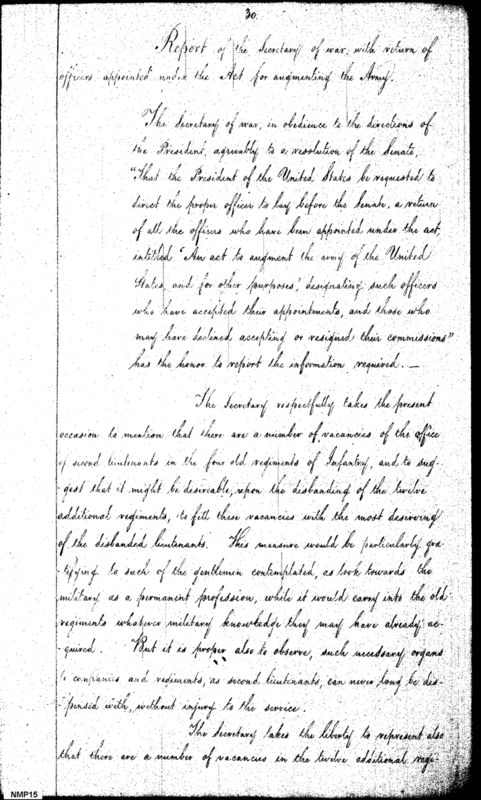 30.
Report of the Secretary of war, with return of
officers appointed under the Act for augmenting the Army.
The Secretary of war, in obedience to the directions of
the President, agreeably to a resolution of the Senate,
"That the President of the United States be requested to
direct the proper officer to lay before the Senate, a return
of all the officers who have been appointed under the act,
intitled "An act to augment the army of the United
States, and for other purposes," designating such officers
who have accepted their appointments, and those who
may have declined accepting or resigned their commissions"
has the honor to report the information required. —
The Secretary respectfully takes the present
occasion to mention that there are a number of vacancies of the office
of second lieutenants in the four old regiments of Infantry, and to sug-
gest that it might be desireable, upon the disbanding of the twelve
additional regiments, to fill these vacancies with the most deserving
of the disbanded lieutenants. This measure would be particularly gra-
tifying to such of the gentlemen contemplated, as look towards the
military as a permanent profession, while it would carry into the old
regiments whatever military knowledge they may have already ac-
quired. But it is proper also to observe, such necessary organs
to companies and regiments, as second lieutenants, can never long be dis-
pensed with, without injury to the service.
The Secretary takes the liberty to represent also
that there are a number of vacancies in the twelve additional regi-
NMP15